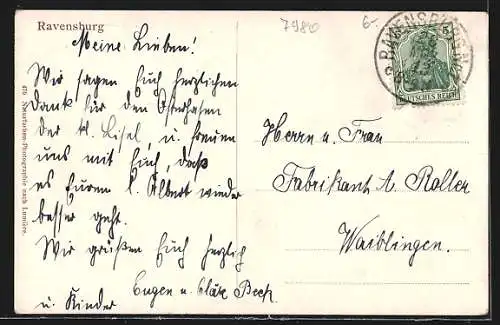 Ravensburg
7980
6.-
RAVENSBURG
DEUTSCHES REICH
Meine Lieben!
Wir sagen Euch herzlichen
Dank für den Osterhasen
der kl. Lisel, u. freuen
uns mit Euch, daß
es Eurem l. Albert wieder
besser geht.
Wir grüßen Euch herzlich
Eugen u. Beck
u. Kinder
Herrn u. Frau
Fabrikant A. Roller
Waiblingen.
479 Naturfarben-Photographie nach Lumière.